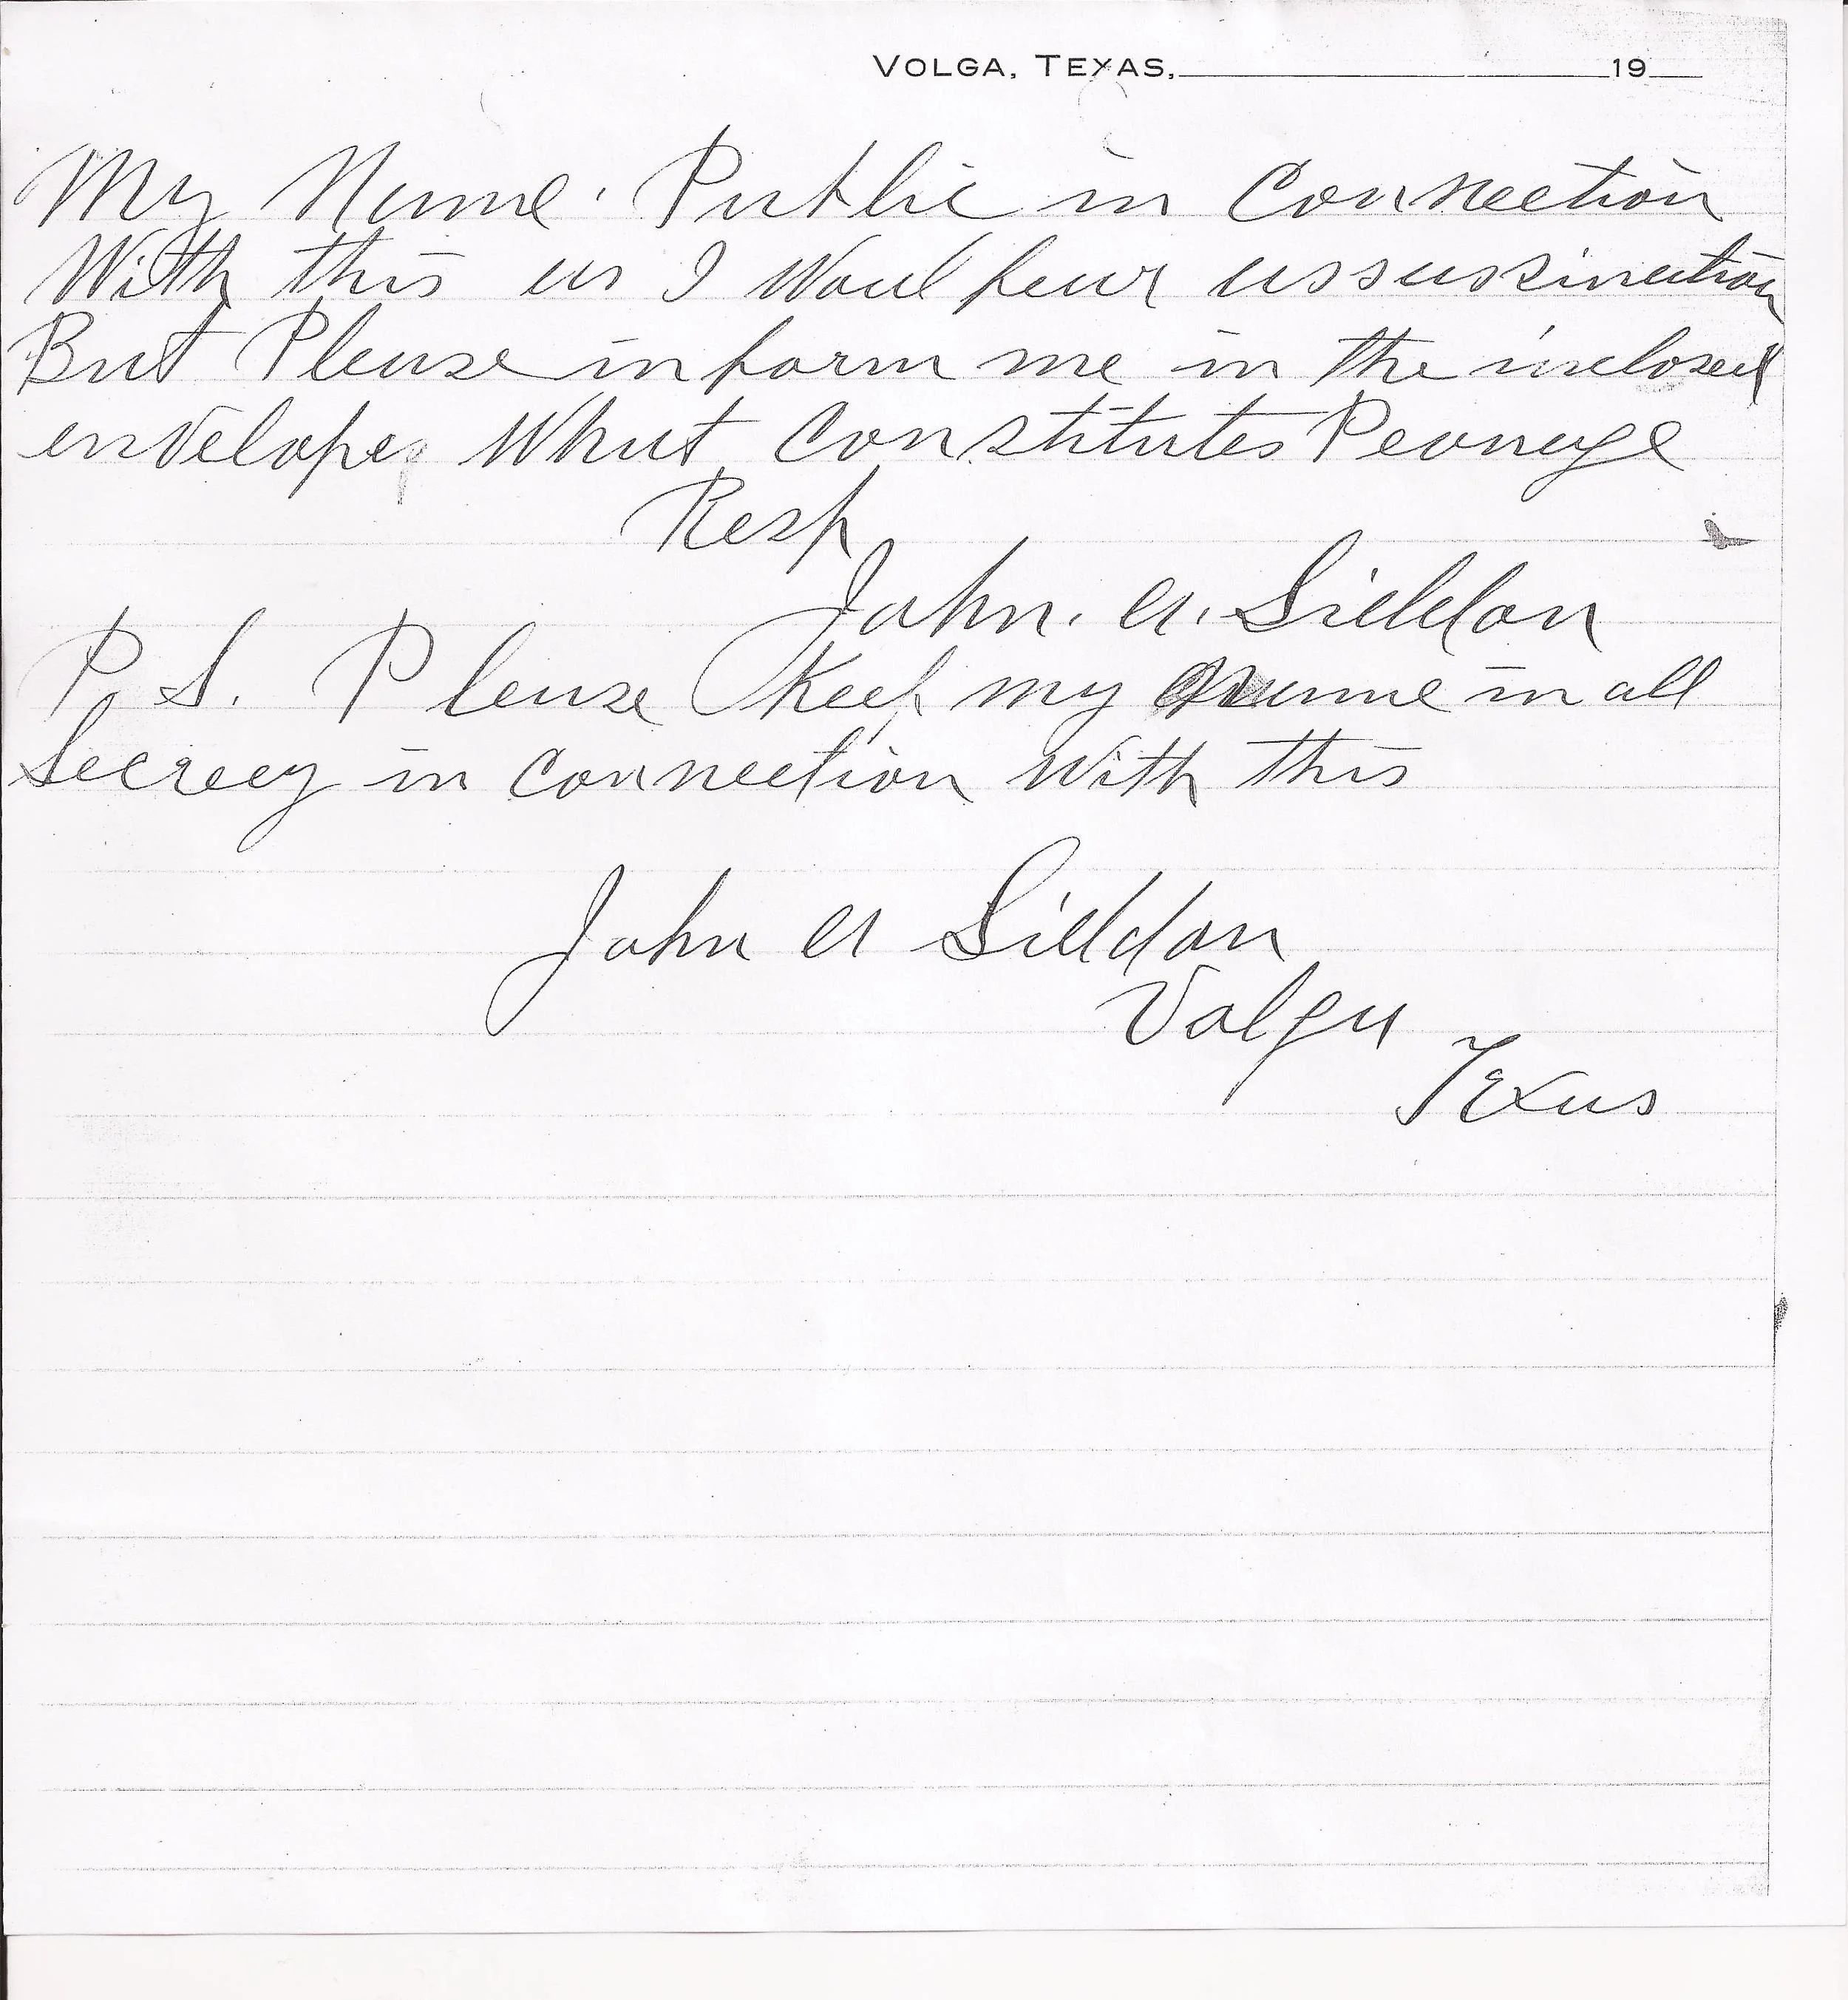 VOLGA, TEXAS, 19
My Name. Public in Connection
With this as I Woul fear assassination
But Please inform me in the inclosed
envelope, What Constitutes Peonage
Resp
John. A. Siddon
P. S. Please Keep my name in all
Secrecy in connection With this
John A Siddon
Volga
Texas